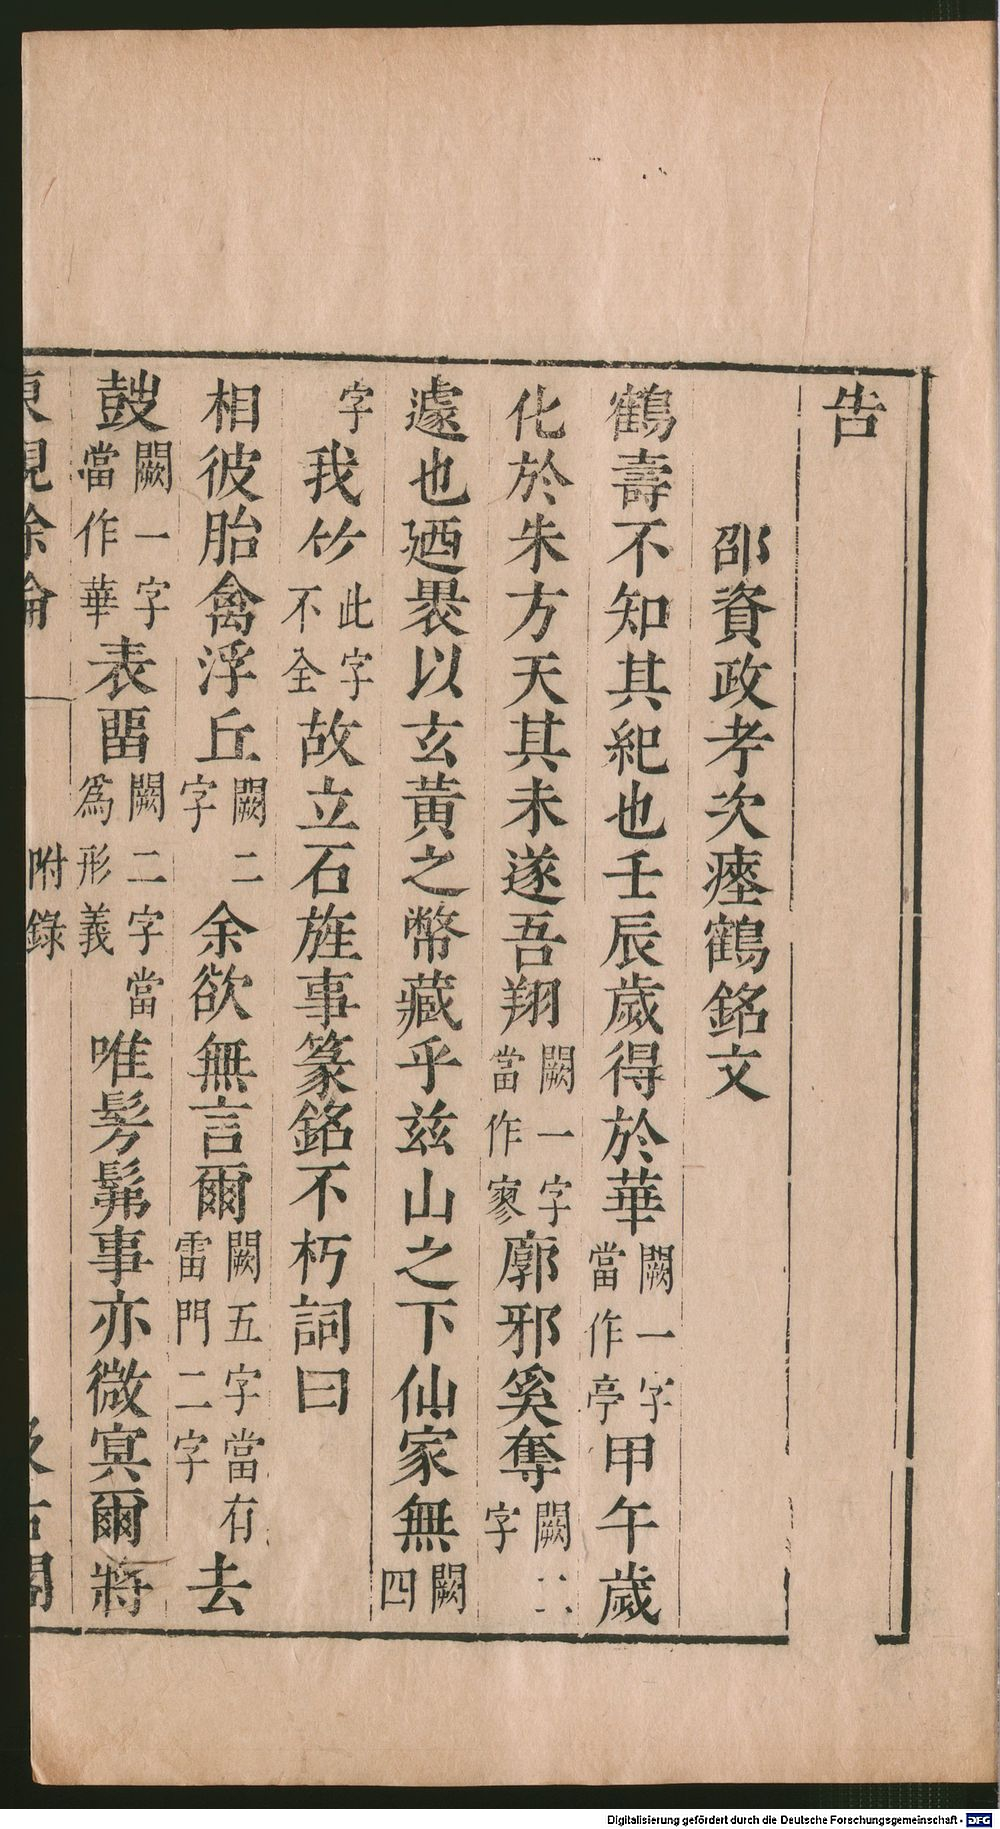 告
邵資政考次瘞鶴銘文
鶴壽不知其紀也壬辰歲得於華闕一字當作亭甲午歲
化於朱方天其未遂吾翔闕一字當作寥廓邪奚奪闕二字
遽也廼裹以玄黃之幣藏乎兹山之下仙家無闕四
字我竹此字不全故立石旌事篆銘不朽詞曰
相彼胎禽浮丘闕二字余欲無言爾闕五字當有雷門二字去
鼓闕一字當作華表畱闕二字當爲形義唯髣髴事亦微冥爾將
東觀餘論
附錄
汲古閣
Digitalisierung gefördert durch die Deutsche Forschungsgemeinschaft - DFG